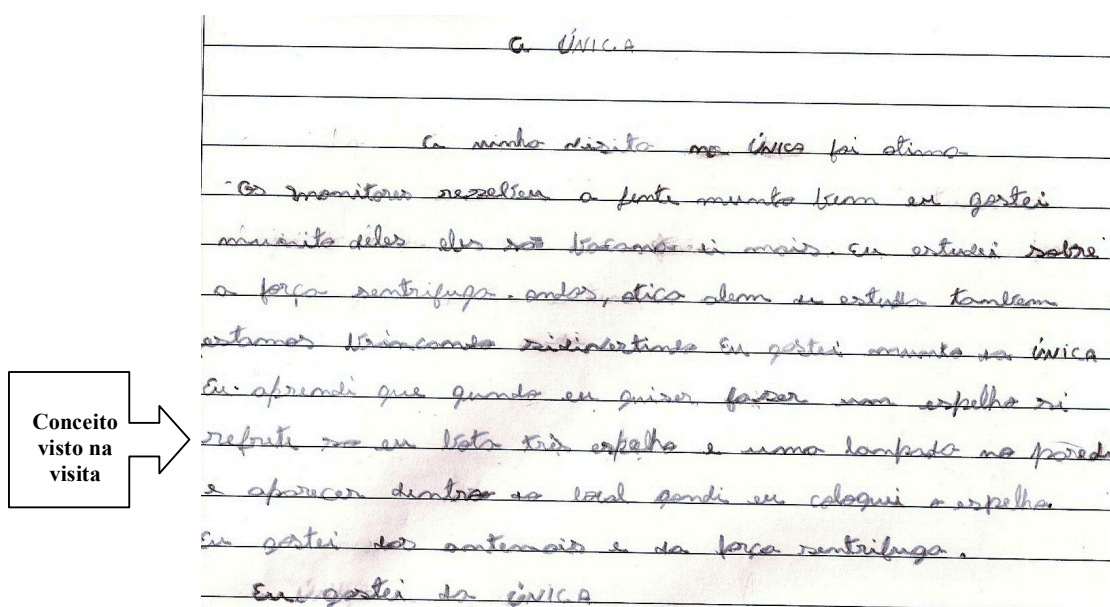 a ÚNICA
a minha visita na ÚNICA foi otima
Os monitores rezzelbeu a jente munto bem eu gostei
muinito deles eles são bacama di mais. Eu estudei sobre
a força sentrifuga. ondas, otica alem di estuda tambem
estamos brincando sidivertindo Eu gostei munto da ÚNICA
Eu. aprendi que quando eu quiser fazer um espelho si
Conceito
visto na
visita
refrute so eu bota três espelho e uma lampada na paredi
e aparecer dentro do local gondi eu coloqui o espelho.
Eu gostei das antenais e da força sentrifuga.
Eu gostei da ÚNICA